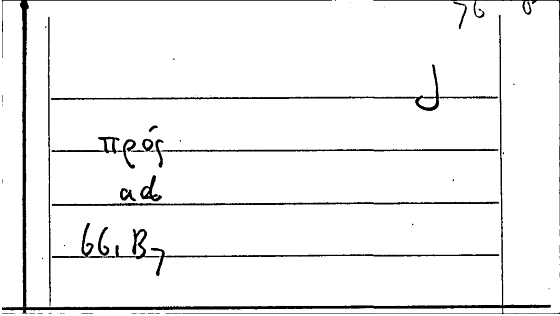 J
πρός
ad
66, B7